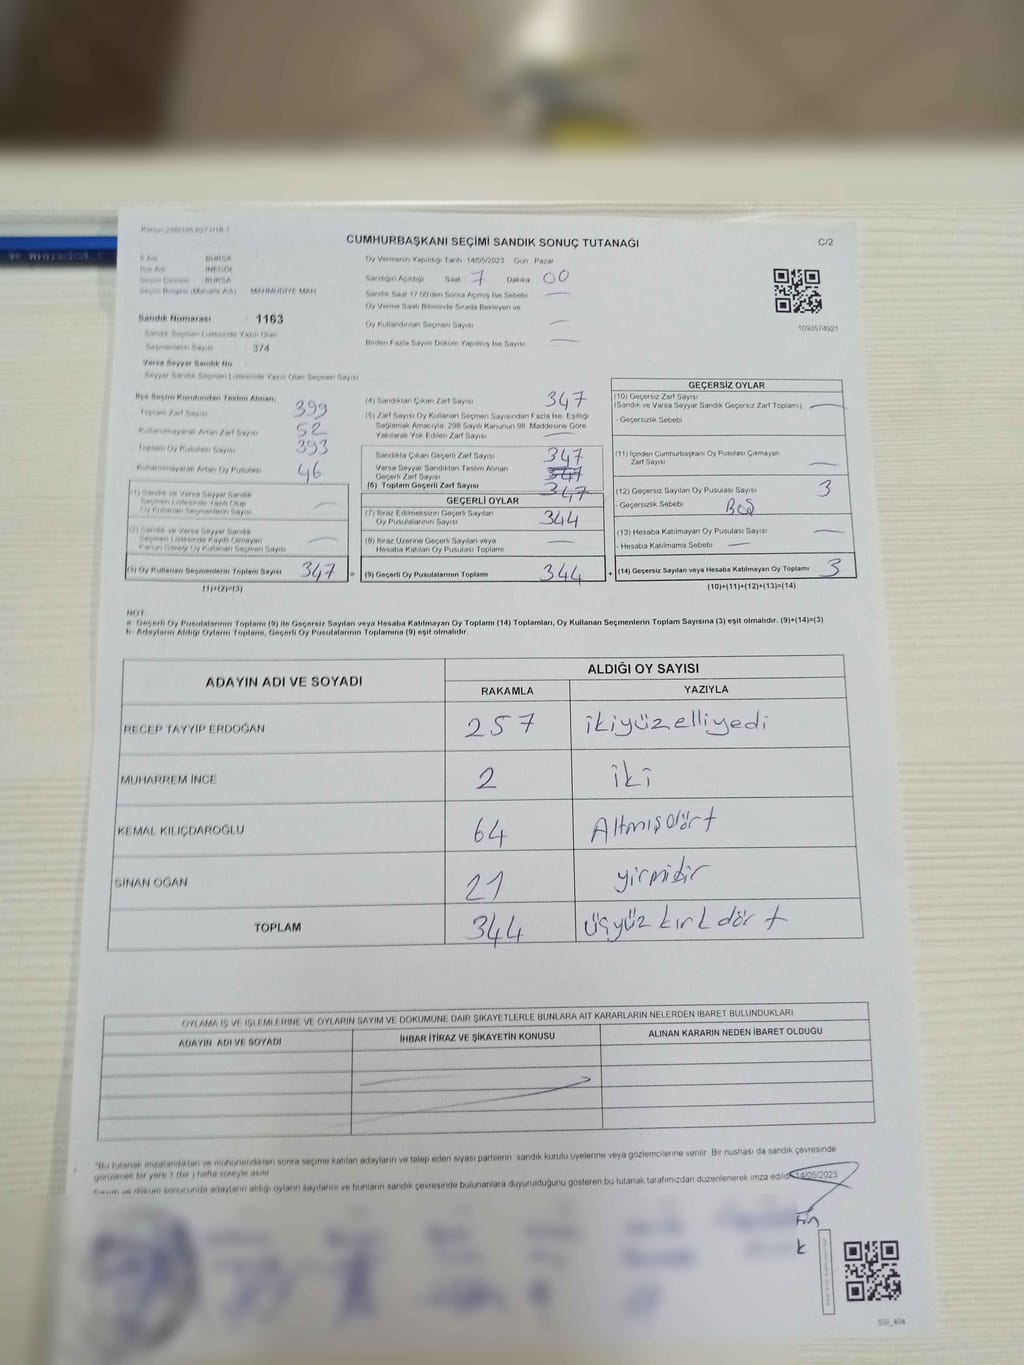 Kanun 298/105,627 Ü/18-1
CUMHURBAŞKANI SEÇİMİ SANDIK SONUÇ TUTANAĞI
C/2
İl Adı BURSA
İlçe Adı İNEGÖL
Seçim Çevresi BURSA
Seçim Bölgesi (Mahalle Adı) MAHMUDİYE MAH
Sandık Numarası : 1163
Sandık Seçmen Listesinde Yazılı Olan
Seçmenlerin Sayısı : 374
Varsa Seyyar Sandık No :
Seyyar Sandık Seçmen Listesinde Yazılı Olan Seçmen Sayısı
Oy Vermenin Yapıldığı Tarih 14/05/2023 Gün Pazar
Sandığın Açıldığı Saat 7 Dakika 00
Sandık Saat 17.00'den Sonra Açılmış İse Sebebi —
Oy Verme Saati Bitiminde Sırada Bekleyen ve
Oy Kullandırılan Seçmen Sayısı —
Birden Fazla Sayım Döküm Yapılmış İse Sayısı —
1093574921
İlçe Seçim Kurulundan Teslim Alınan;
Toplam Zarf Sayısı 399
Kullanılmayarak Artan Zarf Sayısı 52
Toplam Oy Pusulası 393
Kullanılmayarak Artan Oy Pusulası 46
(1) Sandık ve Varsa Seyyar Sandık
Seçmen Listesinde Yazılı Olup
Oy Kullanan Seçmenlerin Sayısı
(2) Sandık ve Varsa Seyyar Sandık
Seçmen Listesinde Kayıtlı Olmayan
Kanun Gereği Oy Kullanan Seçmenlerin Sayısı —
(3) Oy Kullanan Seçmenlerin Toplam Sayısı 347
(1)+(2)=(3)
(4) Sandıktan Çıkan Zarf Sayısı 347
(5) Zarf Sayısı Oy Kullanan Seçmen Sayısından Fazla İse, Eşitliği
Sağlamak Amacıyla, 298 Sayılı Kanunun 98. Maddesine Göre
Yakılarak Yok Edilen Zarf Sayısı —
Sandıkta Çıkan Geçerli Zarf Sayısı 347
Varsa Seyyar Sandıktan Teslim Alınan
Geçerli Zarf Sayısı 347
(6) Toplam Geçerli Zarf Sayısı 347
GEÇERLİ OYLAR
(7) İtiraz Edilmeksizin Geçerli Sayılan
Oy Pusulalarının Sayısı 344
(8) İtiraz Üzerine Geçerli Sayılan veya
Hesaba Katılan Oy Pusulası Toplamı —
= (9) Geçerli Oy Pusulalarının Toplamı 344
GEÇERSİZ OYLAR
(10) Geçersiz Zarf Sayısı
(Sandık ve Varsa Seyyar Sandık Geçersiz Zarf Toplamı) —
- Geçersizlik Sebebi
(11) İçinden Cumhurbaşkanı Oy Pusulası Çıkmayan
Zarf Sayısı —
(12) Geçersiz Sayılan Oy Pusulası Sayısı 3
- Geçersizlik Sebebi Boş
(13) Hesaba Katılmayan Oy Pusulası Sayısı —
- Hesaba Katılmama Sebebi —
+ (14) Geçersiz Sayılan veya Hesaba Katılmayan Oy Toplamı 3
(10)+(11)+(12)+(13)=(14)
NOT:
a- Geçerli Oy Pusulalarının Toplamı (9) ile Geçersiz Sayılan veya Hesaba Katılmayan Oy Toplamı (14) Toplamları, Oy Kullanan Seçmenlerin Toplam Sayısına (3) eşit olmalıdır. (9)+(14)=(3)
b- Adayların Aldığı Oyların Toplamı, Geçerli Oy Pusulalarının Toplamına (9) eşit olmalıdır.
ADAYIN ADI VE SOYADI
ALDIĞI OY SAYISI
RAKAMLA YAZIYLA
RECEP TAYYİP ERDOĞAN 257 ikiyüzelliyedi
MUHARREM İNCE 2 iki
KEMAL KILIÇDAROĞLU 64 Altmışdört
SİNAN OĞAN 21 yirmibir
TOPLAM 344 üçyüz kırk dört
OYLAMA İŞ VE İŞLEMLERİNE VE OYLARIN SAYIM VE DÖKÜMÜNE DAİR ŞİKAYETLERLE BUNLARA AİT KARARLARIN NELERDEN İBARET BULUNDUKLARI
ADAYIN ADI VE SOYADI İHBAR İTİRAZ VE ŞİKAYETİN KONUSU ALINAN KARARIN NEDEN İBARET OLDUĞU
"Bu tutanak imzalandıktan ve mühürlendikten sonra seçime katılan adayların ve talep eden siyasi partilerin sandık kurulu üyelerine veya gözlemcilerine verilir. Bir nüshası da sandık çevresinde
görülecek bir yere 1 (bir) hafta süreyle asılır.
Sayım ve döküm sonucunda adayların aldığı oyların sayılarını ve bunların sandık çevresinde bulunanlara duyurulduğunu gösteren bu tutanak tarafımızdan düzenlenerek imza edildi. 14/05/2023
SSI_404